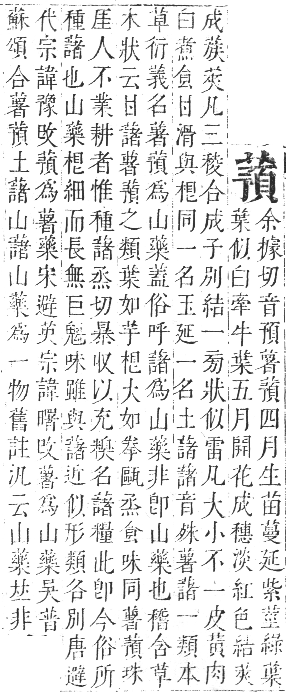 蕷
余據切音預薯蕷四月生苗蔓延紫莖綠葉
葉似白牽牛葉五月開花成穗淡紅色結莢
成蔟莢凡三稜合成子別結一旁狀似雷凡大小不一皮黃肉
白煮食甘滑與根同一名玉延一名土藷藷音殊薯藷一類本
草衍義名薯蕷爲山藥蓋俗呼藷爲山藥非卽山藥也稽含草
木狀云甘藷薯蕷之類葉如芋根大如拳甌烝食味同薯蕷珠
厓人不業耕者惟種藷烝切暴收以充糗名藷糧此卽今俗所
種藷也山藥根細而長無巨魁味雖與藷近似形類各別唐避
代宗諱豫改蕷爲薯藥宋避英宗諱曙改薯爲山藥吳普
蘇頌合薯蕷土藷山藷山藥爲一物舊註汎云山藥𠀤非